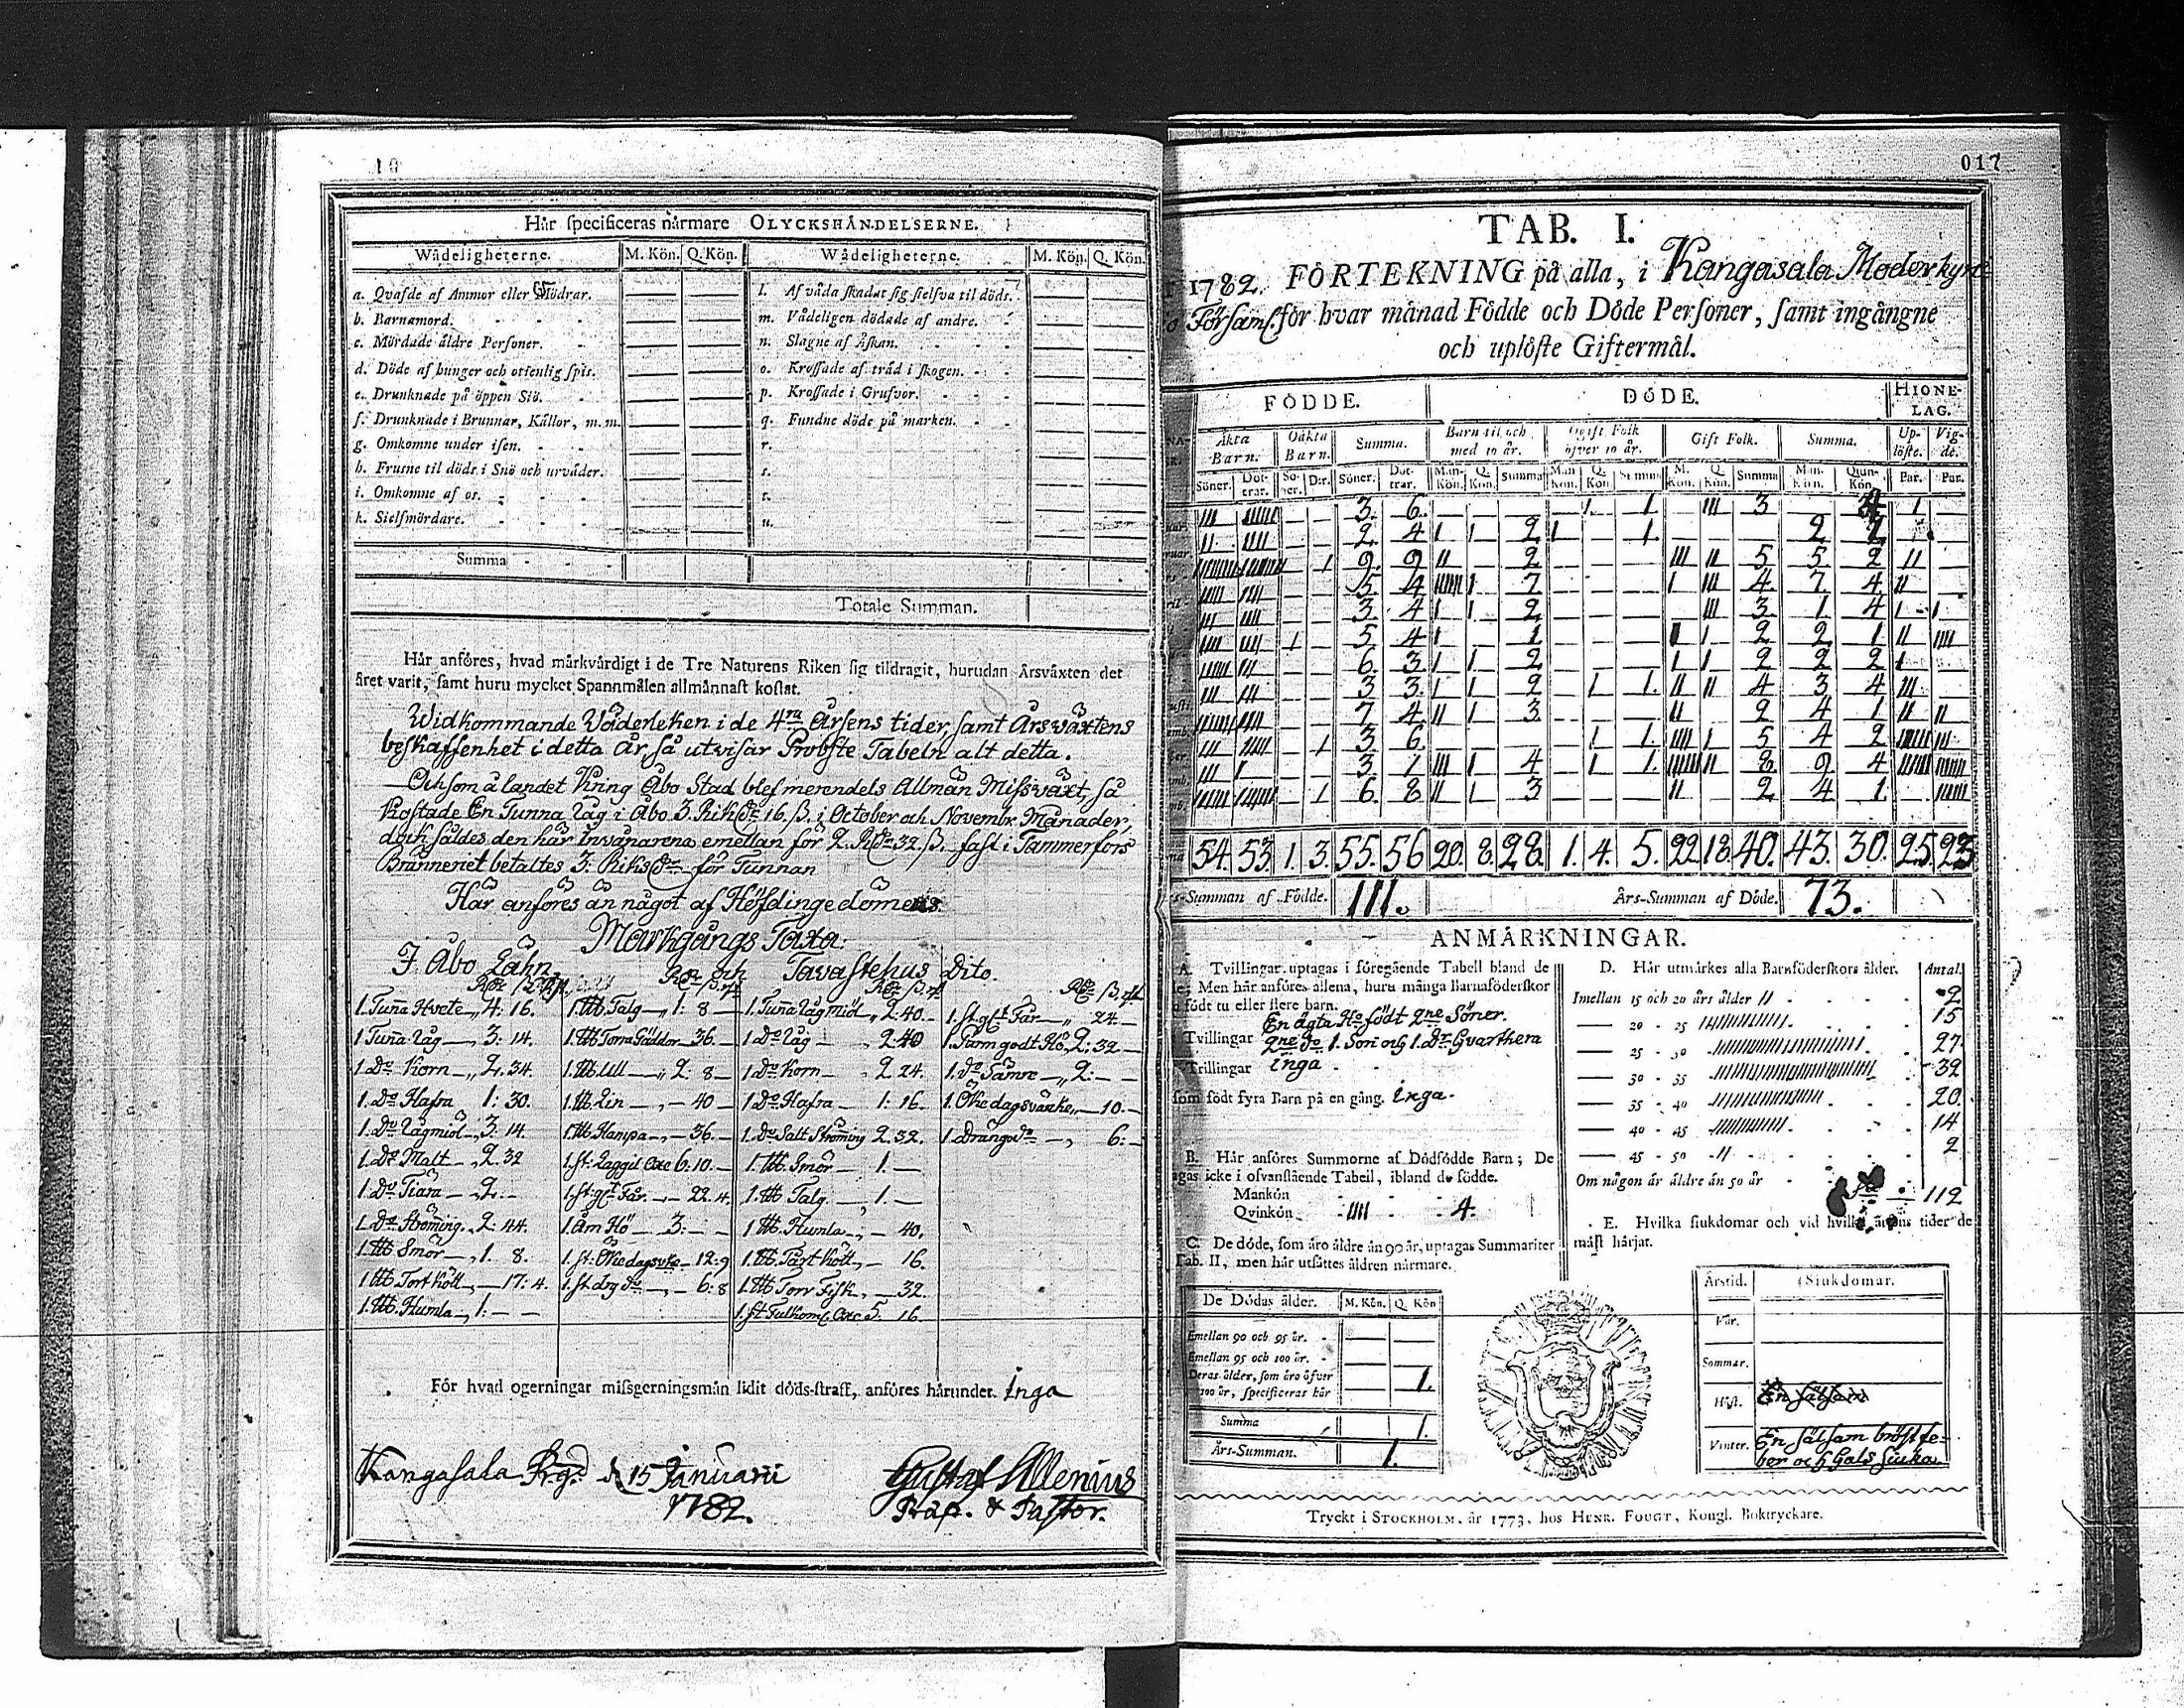 10
Här specificeras närmare OLYCKSHÄNDELSERNE.
Wådeligheterne. M. Kön. Q. Kön. Wådeligheterne. M. Kön. Q. Kön.
a. Qvafde af Ammor eller Mödrar. l. Af våda skadat sig sielfva til döds.
b. Barnamord. m. Vådeligen dödade af andre.
c. Mördade äldre Personer. n. Slagne af Åskan.
d. Döde af hunger och otienlig spis. o. Krossade af träd i skogen.
e. Drunknade på öppen Siö. p. Krossade i Grufvor.
f. Drunknade i Brunnar, Källor, m. m. q. Fundne döde på marken.
g. Omkomne under isen. r.
h. Frusne til döds i Snö och urväder. s.
i. Omkomne af os. t.
k. Sielfmördare. u.
Summa
Totale Summan.
Här anföres, hvad märkvärdigt i de Tre Naturens Riken sig tildragit, hurudan Årsväxten det
året varit, samt huru mycket Spannmålen allmännast kostat.
Widkommande Wäderleken i de 4ra Årsens tider, samt Årswäxtens
beskaffenhet i detta År, så utvisar Probste Tabeln alt detta.
Och som å landet kring Åbo Stad blef merendels Allmän Missväxt, så
kostade En Tunna Råg i Åbo 3. Rikdr 16. ß. i October och Novembr. Månader,
doch såldes den här Invånarena emellan för 2. Rdr 32. ß. fast i Tammerfors
Bränneriet betaltes 3. Riksdr för Tunnan
Här anföres än något af Höfdingedömens
Markgångs Taxa:
I Åbo Lähn. Tavastehus Dito.
1. Tunna Hvete 4: 16. 1. ℔ Talg 1: 8 1. Tunna Rågmiöl 2.40. 1. st. gt Får 24.
1. Tunna Råg 3: 14. 1. ℔ Torra Gäddor 36. 1 Do Råg 2:40 1. Parm godt Hö 2: 32
1. Do Korn 2. 34. 1. ℔ Ull 2: 8 1. Do Korn 2 24. 1. do Sämre 2:
1. Do Hafra 1: 30. 1. ℔ Lin 40 1 Do Hafra 1: 16. 1. Öke dagsvärke 10.
1. Do Rågmiöl 3. 14. 1. ℔ Hampa 36. 1. Do Salt Strömming 2. 32. 1 Drängs do 6:
1. Do Malt 2. 32 1. st: Laggil Oxe 6: 10. 1. ℔ Smör 1.
1. Do Tiära 2. 1. st: gt Får 22. 4. 1. ℔ Talg 1.
1. Do Strömming. 2: 44. 1. Åm Hö 3: 1 ℔. Humla 40.
1. ℔ Smör 1. 8. 1. st: Öke dagsvke 12: 9 1. ℔ Torrt kött 16.
1 ℔ Tort kött 17: 4. 1. st. drg do 6: 8 1. ℔ Torr Fisk 32.
1. ℔. Humla 1. 1. st Fulkoml. Oxe 5. 16.
För hvad ogerningar missgerningsmän lidit döds-straff, anföres härunder. Inga
Kangasala Prgd d. 15 Januarii
1782.
Gustaf Allenius
Präp. & Pastor.
017
TAB. I.
1782. FÖRTEKNING på alla, i Kangasala Moderkyrc
Församl. för hvar månad Födde och Döde Personer, samt ingångne
och uplöste Giftermål.
FÖDDE. DÖDE. HIONE-LAG.
Äkta Barn. Oäkta Barn. Summa. Barn til och med 10 år. Ogift Folk öfver 10 år. Gift Folk. Summa. Up-löste. Vig-de.
Söner. Döt-trar. Sö-ner. D:r. Söner. Döt-trar. Man-Kön. Q. Kön. Summa Man Kön. Q. Kön. Summa M. Kön. Q. Kön. Summa Man. Kön. Qvin-Kön. Par. Par.
III IIIIII 3. 6. 1 1. III 3 1
II IIII 2. 4 1 1 2 1 1. 2 2
1 9. 9 II 2 III II 5 5. 2 II
5. 4 1 7 1 III 4. 7. 4 II
III IIII 3. 4 1 1 2 III 3. 1 4 1 1
1 5. 4 1 1 1 2 2 1 II IIII
6. 3 1 1 2 1 1 2 2 2 1
III III 3 3. 1 1 2 1 1. II II 4 3 4 III
7 4 II 1 3. II 2 4 1 II II
III 1 3 6. 1 1. IIII 1 5 4 2 III
III 1 3. 1 III 1 4 1 1. II 8. 9 4
1 6. 8 II 1 3 II 2 4 1.
54. 53. 1. 3. 55. 56 20. 8. 28. 1. 4. 5. 22 18. 40. 43. 30. 25. 23
s-Summan af Födde. 111. Års-Summan af Döde. 73.
ANMÄRKNINGAR.
A. Tvillingar uptagas i föregående Tabell bland de
Men här anföres allena, huru många Barnaföderskor
födt tu eller flere barn.
En ägta Ho födt 2ne Söner.
Tvillingar 2ne do 1. Son och 1. Dr hvarthera
Trillingar Inga
som födt fyra Barn på en gång. Inga.
B. Här anföres Summorne af Dödfödde Barn; De
agas icke i ofvanstående Tabell, ibland de födde.
Mankön
Qvinkön IIII 4.
C. De döde, som äro äldre än 90 år, uptagas Summariter
Tab. II, men här utsättes åldren närmare.
De Dödas ålder. M. Kön. Q. Kön
Emellan 90 och 95 år.
Emellan 95 och 100 år.
Deras ålder, som äro öfver
100 år, specificeras här 1.
Summa 1.
Års-Summan. 1.
D. Här utmärkes alla Barnföderskors ålder. Antal.
Imellan 15 och 20 års ålder II 2
20 - 25 15
25 - 30 27
30 - 35 32
35 - 40 20.
40 - 45 14
45 - 50 II 2
Om någon är äldre än 50 år
112
E. Hvilka siukdomar och vid hvilka årens tider de
mäst härjat.
Årstid. Siukdomar.
Vår.
Sommar.
Höst. En sälsam
Vinter. En sälsam bröstfe-
ber och Hals siuka
Tryckt i STOCKHOLM, år 1773, hos HENR. FOUGT, Kongl. Boktryckare.